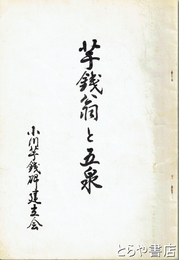 芋銭翁と五泉
小川芋銭碑建立会
とらや書店